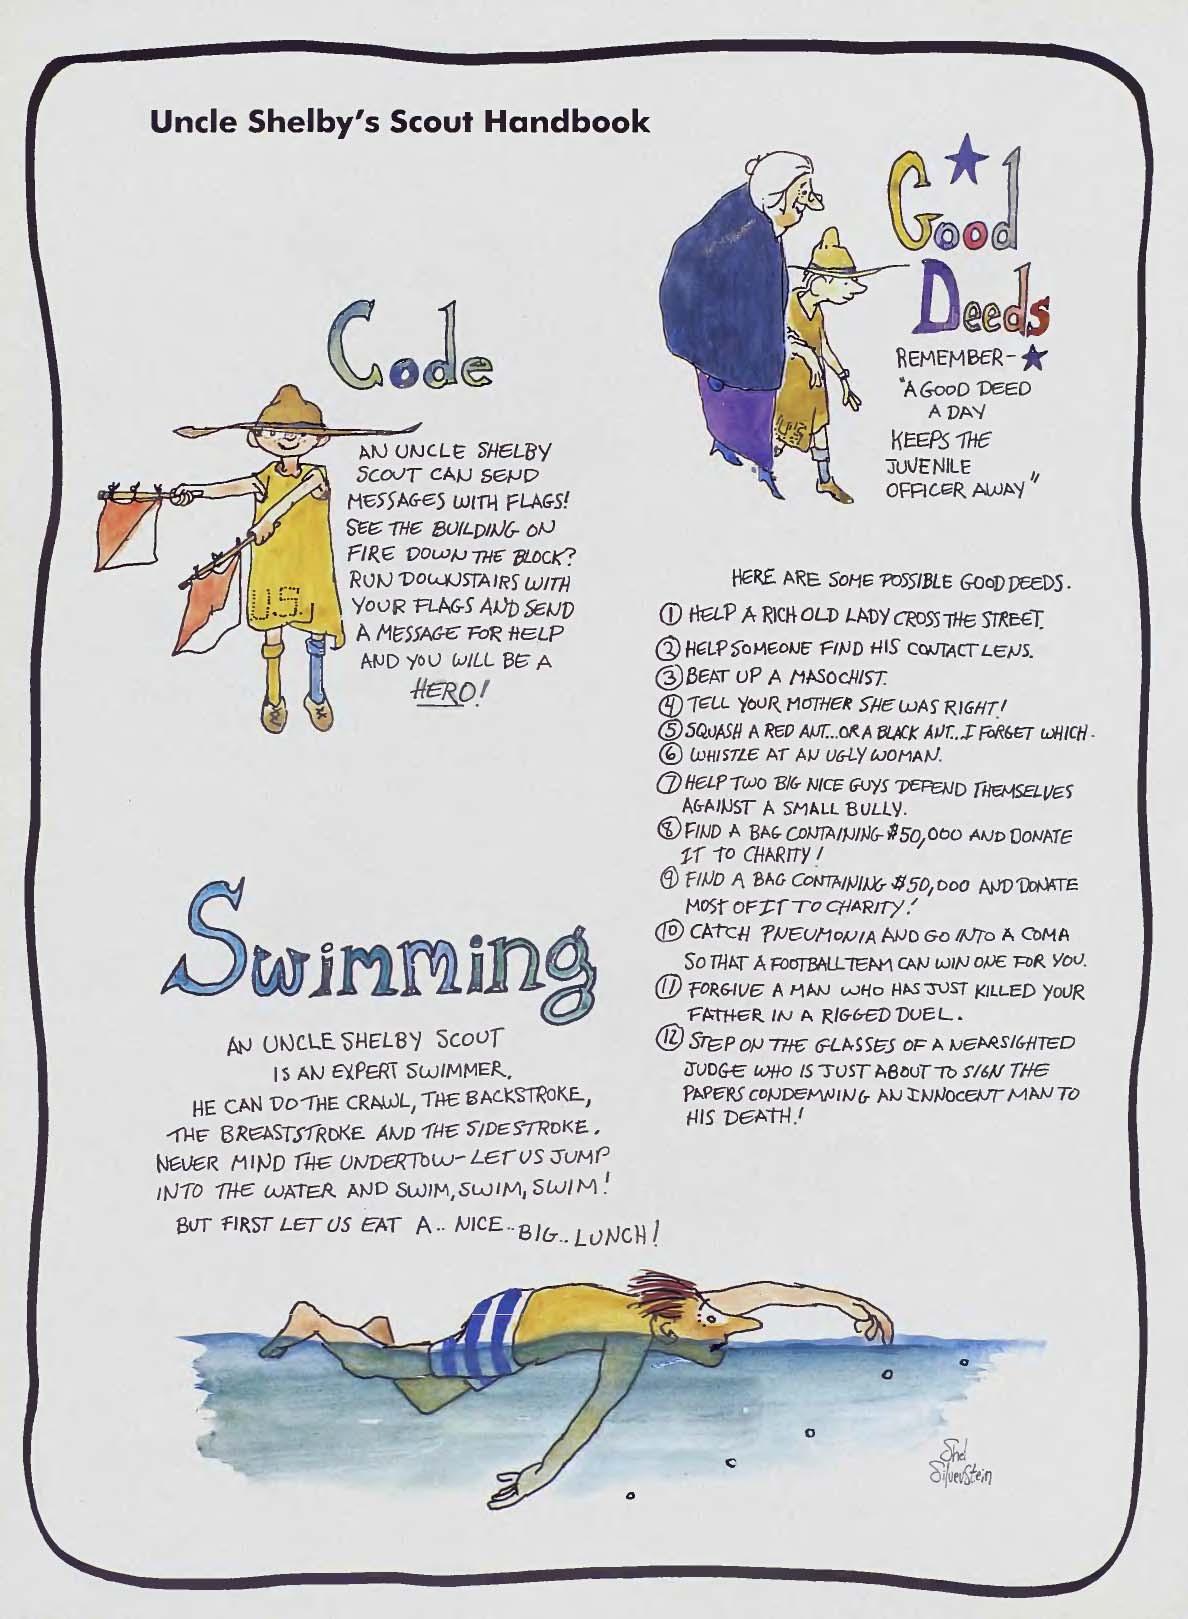 Uncle Shelby's Scout Handbook
Code
AN UNCLE SHELBY
SCOUT CAN SEND
MESSAGES WITH FLAGS!
SEE THE BUILDING ON
FIRE DOWN THE BLOCK?
RUN DOWNSTAIRS WITH
YOUR FLAGS AND SEND
A MESSAGE FOR HELP
AND YOU WILL BE A
HERO!
U.S.
Swimming
AN UNCLE SHELBY SCOUT
IS AN EXPERT SWIMMER.
HE CAN DO THE CRAWL, THE BACKSTROKE,
THE BREASTSTROKE AND THE SIDESTROKE.
NEVER MIND THE UNDERTOW- LET US JUMP
INTO THE WATER AND SWIM, SWIM, SWIM!
BUT FIRST LET US EAT A.. NICE.. BIG.. LUNCH!
Good
Deeds
REMEMBER-
"A GOOD DEED
A DAY
KEEPS THE
JUVENILE
OFFICER AWAY"
U.S
HERE ARE SOME POSSIBLE GOOD DEEDS.
① HELP A RICH OLD LADY CROSS THE STREET.
② HELP SOMEONE FIND HIS CONTACT LENS.
③ BEAT UP A MASOCHIST.
④ TELL YOUR MOTHER SHE WAS RIGHT!
⑤ SQUASH A RED ANT...OR A BLACK ANT...I FORGET WHICH.
⑥ WHISTLE AT AN UGLY WOMAN.
⑦ HELP TWO BIG NICE GUYS DEFEND THEMSELVES
AGAINST A SMALL BULLY.
⑧ FIND A BAG CONTAINING $50,000 AND DONATE
IT TO CHARITY!
⑨ FIND A BAG CONTAINING $50,000 AND DONATE
MOST OF IT TO CHARITY!
⑩ CATCH PNEUMONIA AND GO INTO A COMA
SO THAT A FOOTBALL TEAM CAN WIN ONE FOR YOU.
⑪ FORGIVE A MAN WHO HAS JUST KILLED YOUR
FATHER IN A RIGGED DUEL.
⑫ STEP ON THE GLASSES OF A NEARSIGHTED
JUDGE WHO IS JUST ABOUT TO SIGN THE
PAPERS CONDEMNING AN INNOCENT MAN TO
HIS DEATH!
Shel
Silverstein